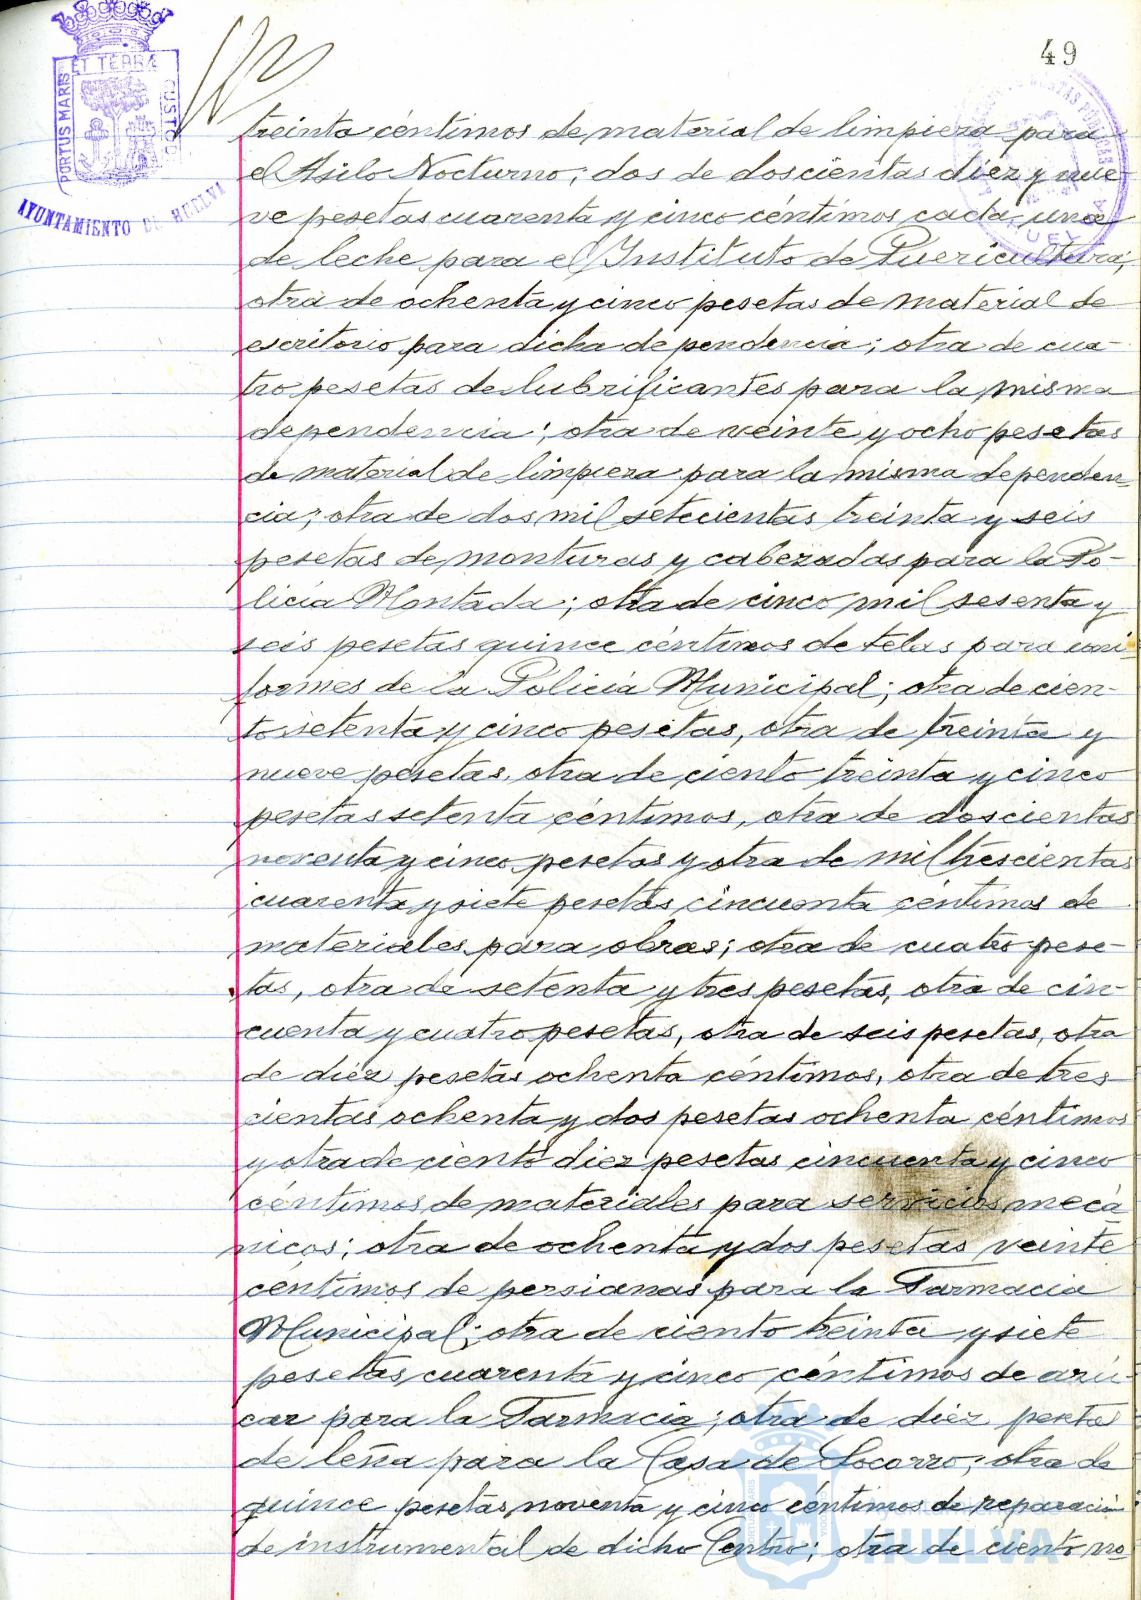 49
PORTUS MARIS ET TERRÆ CUSTOD
AYUNTAMIENTO DE HUELVA
treinta céntimos de material de limpieza para
el Asilo Nocturno; dos de doscientas diez y nue-
ve pesetas cuarenta y cinco céntimos cada una
de leche para el Instituto de Puericultura;
otra de ochenta y cinco pesetas de material de
escritorio para dicha dependencia; otra de cua-
tro pesetas de lubrificantes para la misma
dependencia; otra de veinte y ocho pesetas
de material de limpieza para la misma dependen-
cia; otra de dos mil setecientas treinta y seis
pesetas de monturas y cabezadas para la Po-
licía Montada; otra de cinco mil sesenta y
seis pesetas quince céntimos de telas para uni-
formes de la Policía Municipal; otra de cien-
to setenta y cinco pesetas, otra de treinta y
nueve pesetas, otra de ciento treinta y cinco
pesetas setenta céntimos, otra de doscientas
noventa y cinco pesetas y otra de mil trescientas
cuarenta y siete pesetas cincuenta céntimos de
materiales para obras; otra de cuatro pese-
tas, otra de setenta y tres pesetas, otra de cin-
cuenta y cuatro pesetas, otra de seis pesetas, otra
de diez pesetas ochenta céntimos, otra de tres
cientas ochenta y dos pesetas ochenta céntimos
y otra de ciento diez pesetas cincuenta y cinco
céntimos de materiales para servicios mecá
nicos; otra de ochenta y dos pesetas veinte
céntimos de persianas para la Farmacia
Municipal; otra de ciento treinta y siete
pesetas cuarenta y cinco céntimos de azú-
car para la Farmacia; otra de diez peseta
de leña para la Casa de Socorro; otra de
quince pesetas noventa y cinco céntimos de reparación
de instrumental de dicho Centro; otra de ciento no
Ayuntamiento de
HUELVA